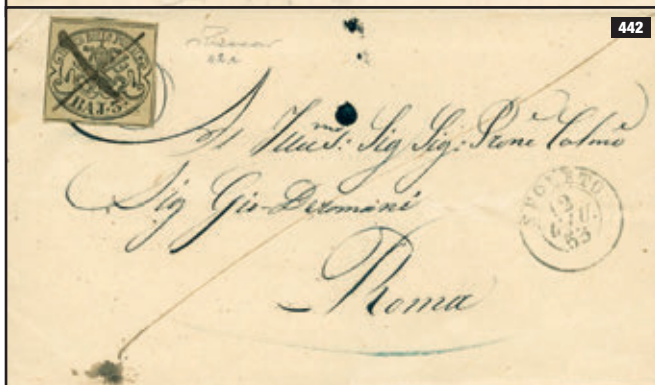 442
BAJ. 5.
All' Illmo: Sig Sig: Prone Colmo
Sig Gio-Deromani
Roma
SPOLETO
12
GIU.
53